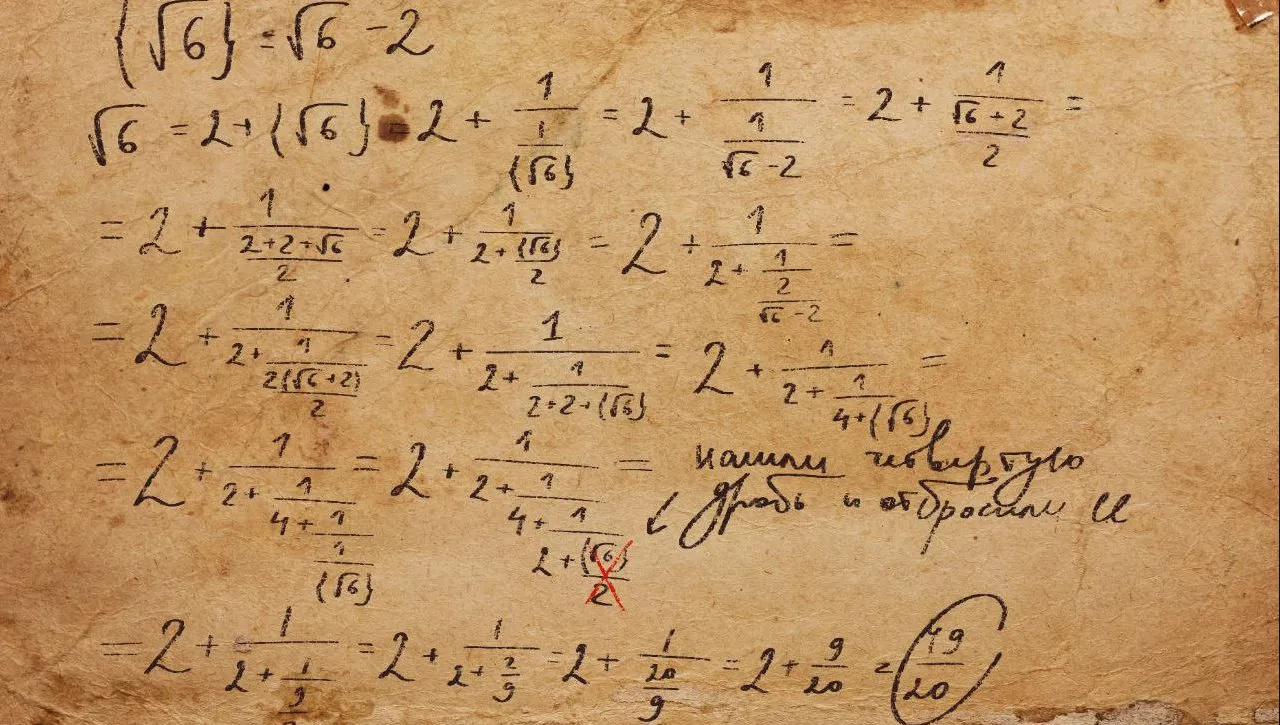 {√6} = √6 - 2
√6 = 2 + {√6} = 2 + 1/(1/{√6}) = 2 + 1/(1/(√6 - 2)) = 2 + 1/((√6 + 2)/2) =
= 2 + 1/((2+2+√6)/2) = 2 + 1/(2 + {√6}/2) = 2 + 1/(2 + 1/(2/(√6 - 2))) =
= 2 + 1/(2 + 1/(2(√6+2)/2)) = 2 + 1/(2 + 1/(2+2+{√6})) = 2 + 1/(2 + 1/(4+{√6})) =
= 2 + 1/(2 + 1/(4 + 1/(1/{√6}))) = 2 + 1/(2 + 1/(4 + 1/(2 + {√6}/2))) = нашли четвертую
дробь и отбросили её
= 2 + 1/(2 + 1/(9/2)) = 2 + 1/(2 + 2/9) = 2 + 1/(20/9) = 2 + 9/20 = 49/20